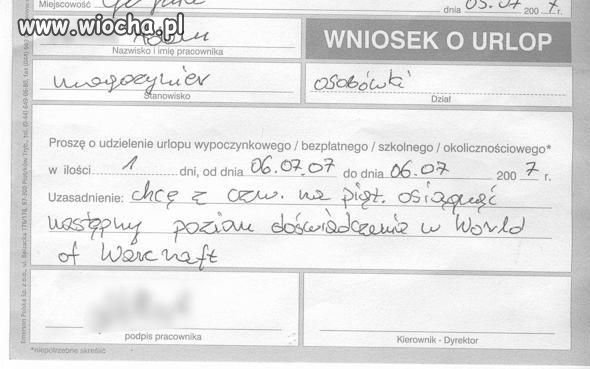 Miejscowość
dnia 05.07 2007 r.
www.wiocha.pl
Nazwisko i imię pracownika
WNIOSEK O URLOP
magazynier
Stanowisko
osobówki
Dział
Proszę o udzielenie urlopu wypoczynkowego / bezpłatnego / szkolnego / okolicznościowego*
w ilości 1 dni, od dnia 06.07.07 do dnia 06.07 2007 r.
Uzasadnienie: chcę z czw. na piąt. osiągnąć
następny poziom doświadczenia w World
of Warcraft
podpis pracownika
Kierownik - Dyrektor
*niepotrzebne skreślić